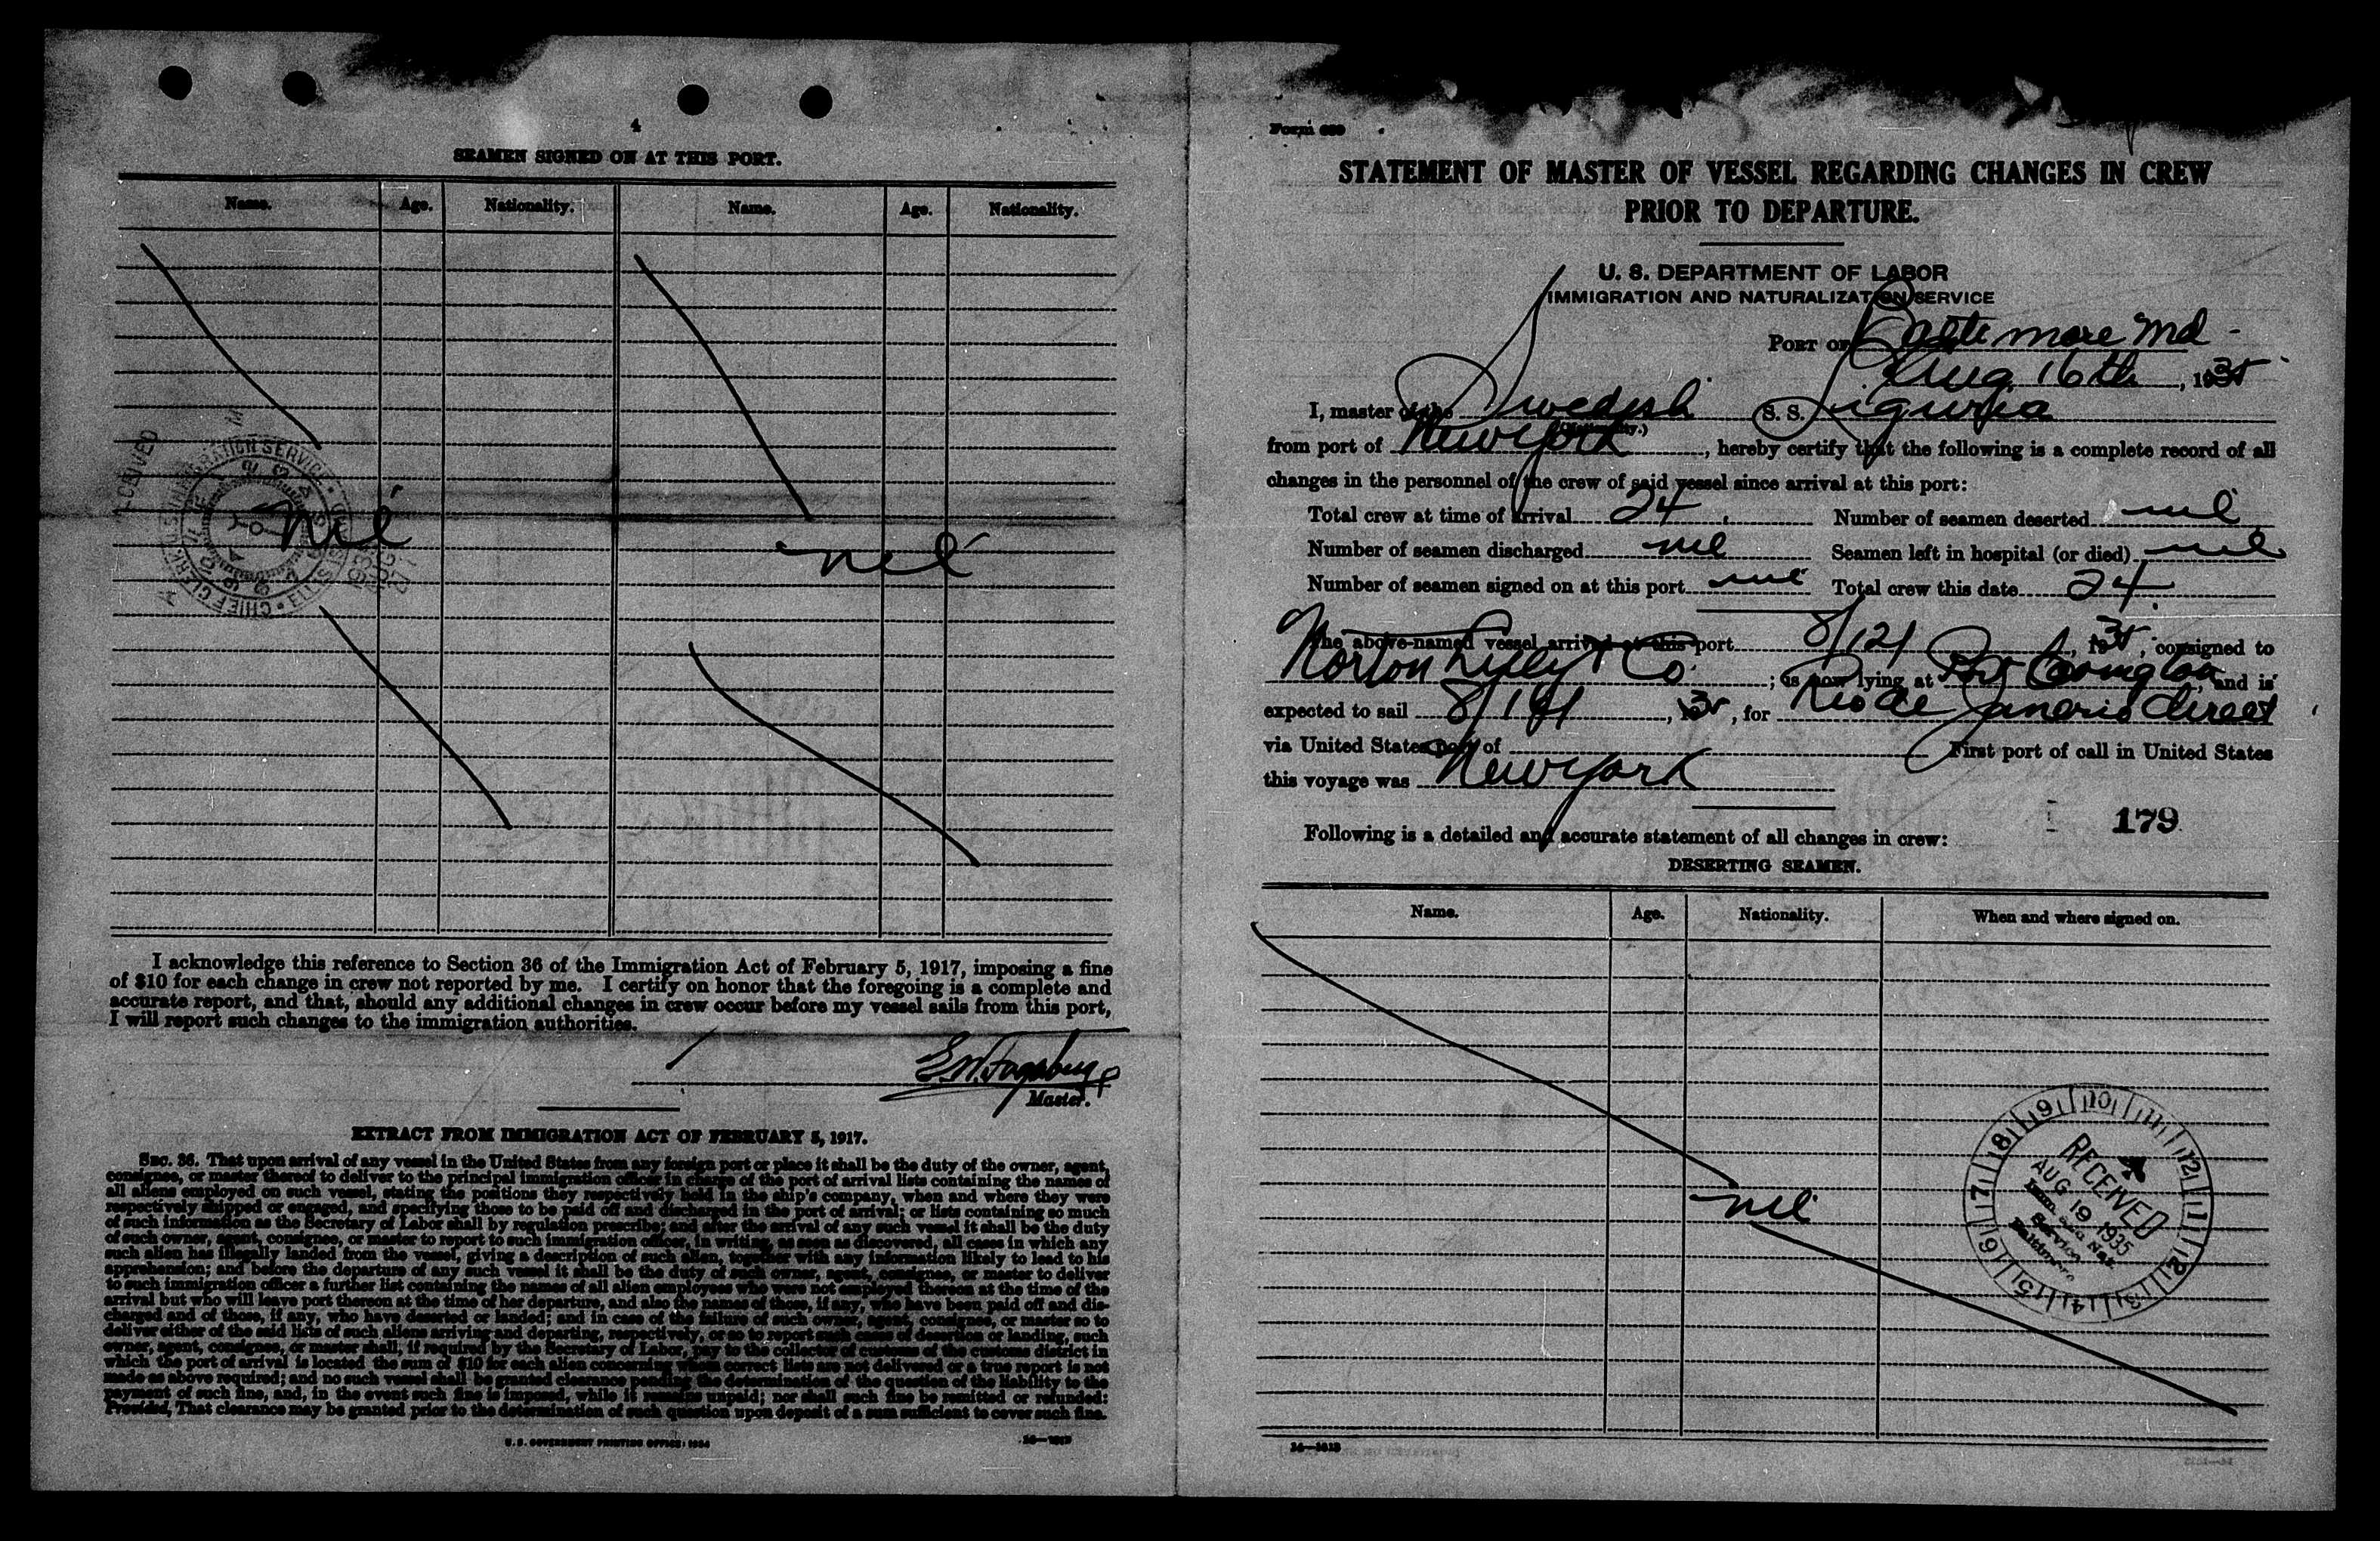 4
SEAMEN SIGNED ON AT THIS PORT.
Name. Age. Nationality. Name. Age. Nationality.
nil
nil
I acknowledge this reference to Section 36 of the Immigration Act of February 5, 1917, imposing a fine
of $10 for each change in crew not reported by me. I certify on honor that the foregoing is a complete and
accurate report, and that, should any additional changes in crew occur before my vessel sails from this port,
I will report such changes to the immigration authorities.
Master.
EXTRACT FROM IMMIGRATION ACT OF FEBRUARY 5, 1917.
SEC. 36. That upon arrival of any vessel in the United States from any foreign port or place it shall be the duty of the owner, agent,
consignee, or master thereof to deliver to the principal immigration officer in charge of the port of arrival lists containing the names of
all aliens employed on such vessel, stating the positions they respectively hold in the ship's company, when and where they were
respectively shipped or engaged, and specifying those to be paid off and discharged in the port of arrival; or lists containing so much
of such information as the Secretary of Labor shall by regulation prescribe; and after the arrival of any such vessel it shall be the duty
of such owner, agent, consignee, or master to report to such immigration officer, in writing, as soon as discovered, all cases in which any
such alien has illegally landed from the vessel, giving a description of such alien, together with any information likely to lead to his
apprehension; and before the departure of any such vessel it shall be the duty of such owner, agent, consignee, or master to deliver
to such immigration officer a further list containing the names of all alien employees who were not employed thereon at the time of the
arrival but who will leave port thereon at the time of her departure, and also the names of those, if any, who have been paid off and dis-
charged and of those, if any, who have deserted or landed; and in case of the failure of such owner, agent, consignee, or master so to
deliver either of the said lists of such aliens arriving and departing, respectively, or so to report such cases of desertion or landing, such
owner, agent, consignee, or master shall, if required by the Secretary of Labor, pay to the collector of customs of the customs district in
which the port of arrival is located the sum of $10 for each alien concerning whom correct lists are not delivered or a true report is not
made as above required; and no such vessel shall be granted clearance pending the determination of the question of the liability to the
payment of such fine, and, in the event such fine is imposed, while it remains unpaid; nor shall such fine be remitted or refunded:
Provided, That clearance may be granted prior to the determination of such question upon deposit of a sum sufficient to cover such fine.
U. S. GOVERNMENT PRINTING OFFICE: 1934
Form
STATEMENT OF MASTER OF VESSEL REGARDING CHANGES IN CREW
PRIOR TO DEPARTURE.
U. S. DEPARTMENT OF LABOR
IMMIGRATION AND NATURALIZATION SERVICE
PORT OF Baltimore Md
Aug 16th, 1935
I, master of the Swedish S. S. Liguria
from port of New York, hereby certify that the following is a complete record of all
changes in the personnel of the crew of said vessel since arrival at this port:
Total crew at time of arrival 24 Number of seamen deserted nil
Number of seamen discharged nil Seamen left in hospital (or died) nil
Number of seamen signed on at this port nil Total crew this date 24
The above-named vessel arrived at this port 8/12/, 1935, consigned to
Norton Lilly & Co.; is now lying at Port Covington, and is
expected to sail 8/16/, 1935, for Rio de Janerio direct
via United States port of First port of call in United States
this voyage was New York
179
Following is a detailed and accurate statement of all changes in crew:
DESERTING SEAMEN.
Name. Age. Nationality. When and where signed on.
nil
RECEIVED
AUG 19 1935
14—1613